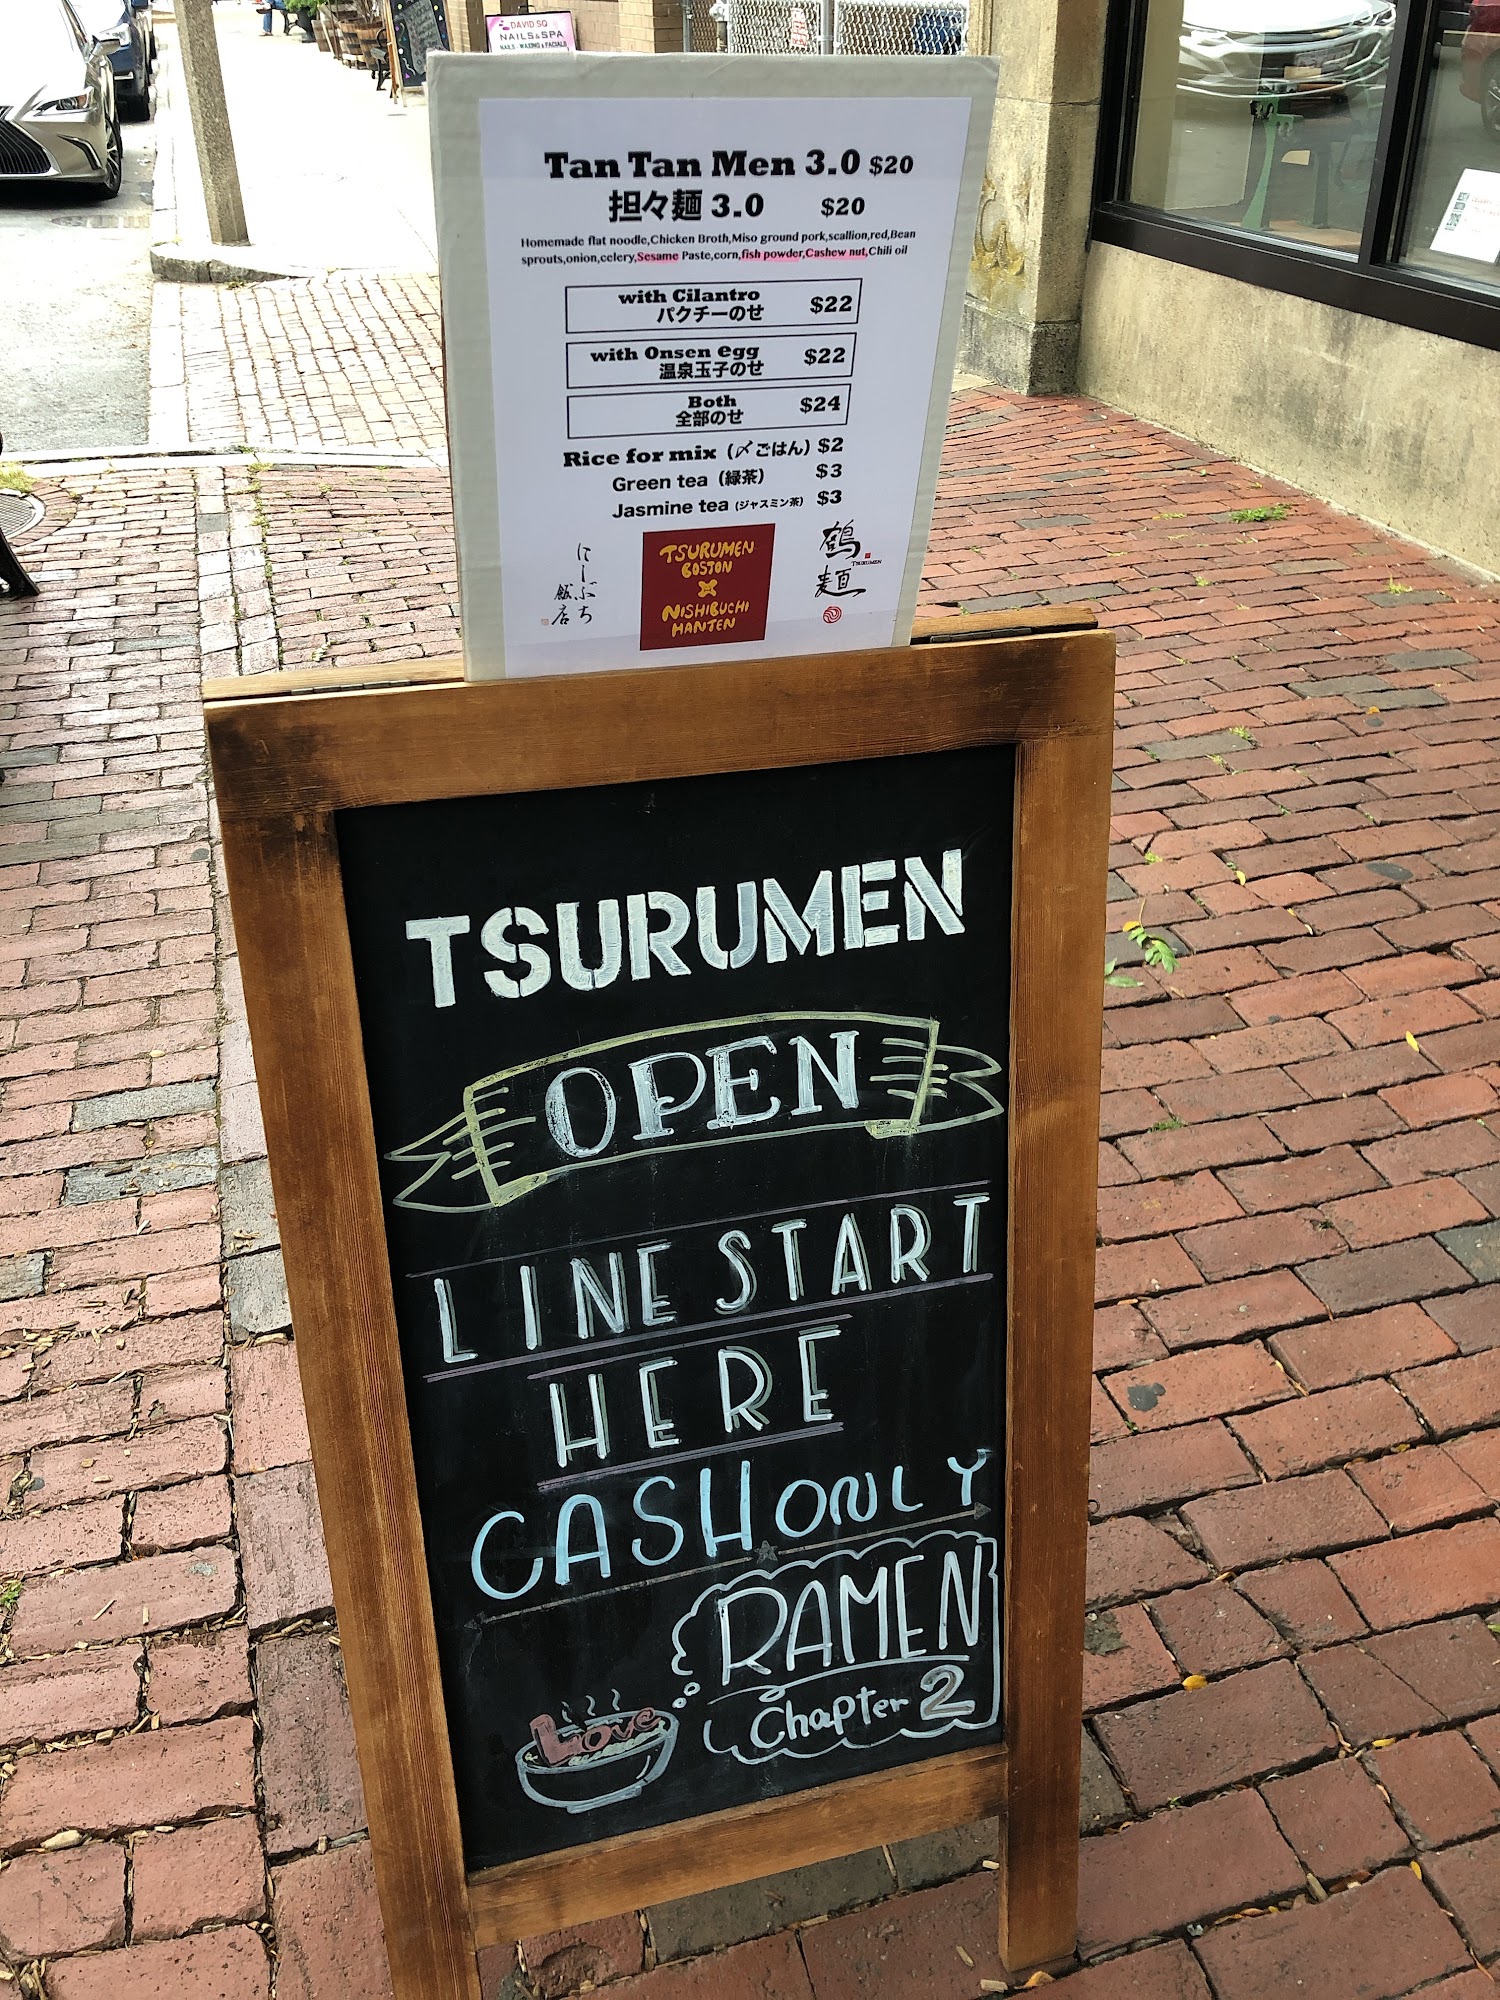 DAVID SQ
NAILS & SPA
NAILS · WAXING & FACIALS
Tan Tan Men 3.0 $20
担々麺 3.0 $20
Homemade flat noodle,Chicken Broth,Miso ground pork,scallion,red,Bean
sprouts,onion,celery,Sesame Paste,corn,fish powder,Cashew nut,Chili oil
with Cilantro $22
パクチーのせ
with Onsen egg $22
温泉玉子のせ
Both $24
全部のせ
Rice for mix (〆ごはん) $2
Green tea (緑茶) $3
Jasmine tea (ジャスミン茶) $3
にしぶち
飯店
TSURUMEN
BOSTON
×
NISHIBUCHI
HANTEN
鶴麺
TSURUMEN
TSURUMEN
OPEN
LINE START
HERE
CASH ONLY
RAMEN
Chapter 2
Love